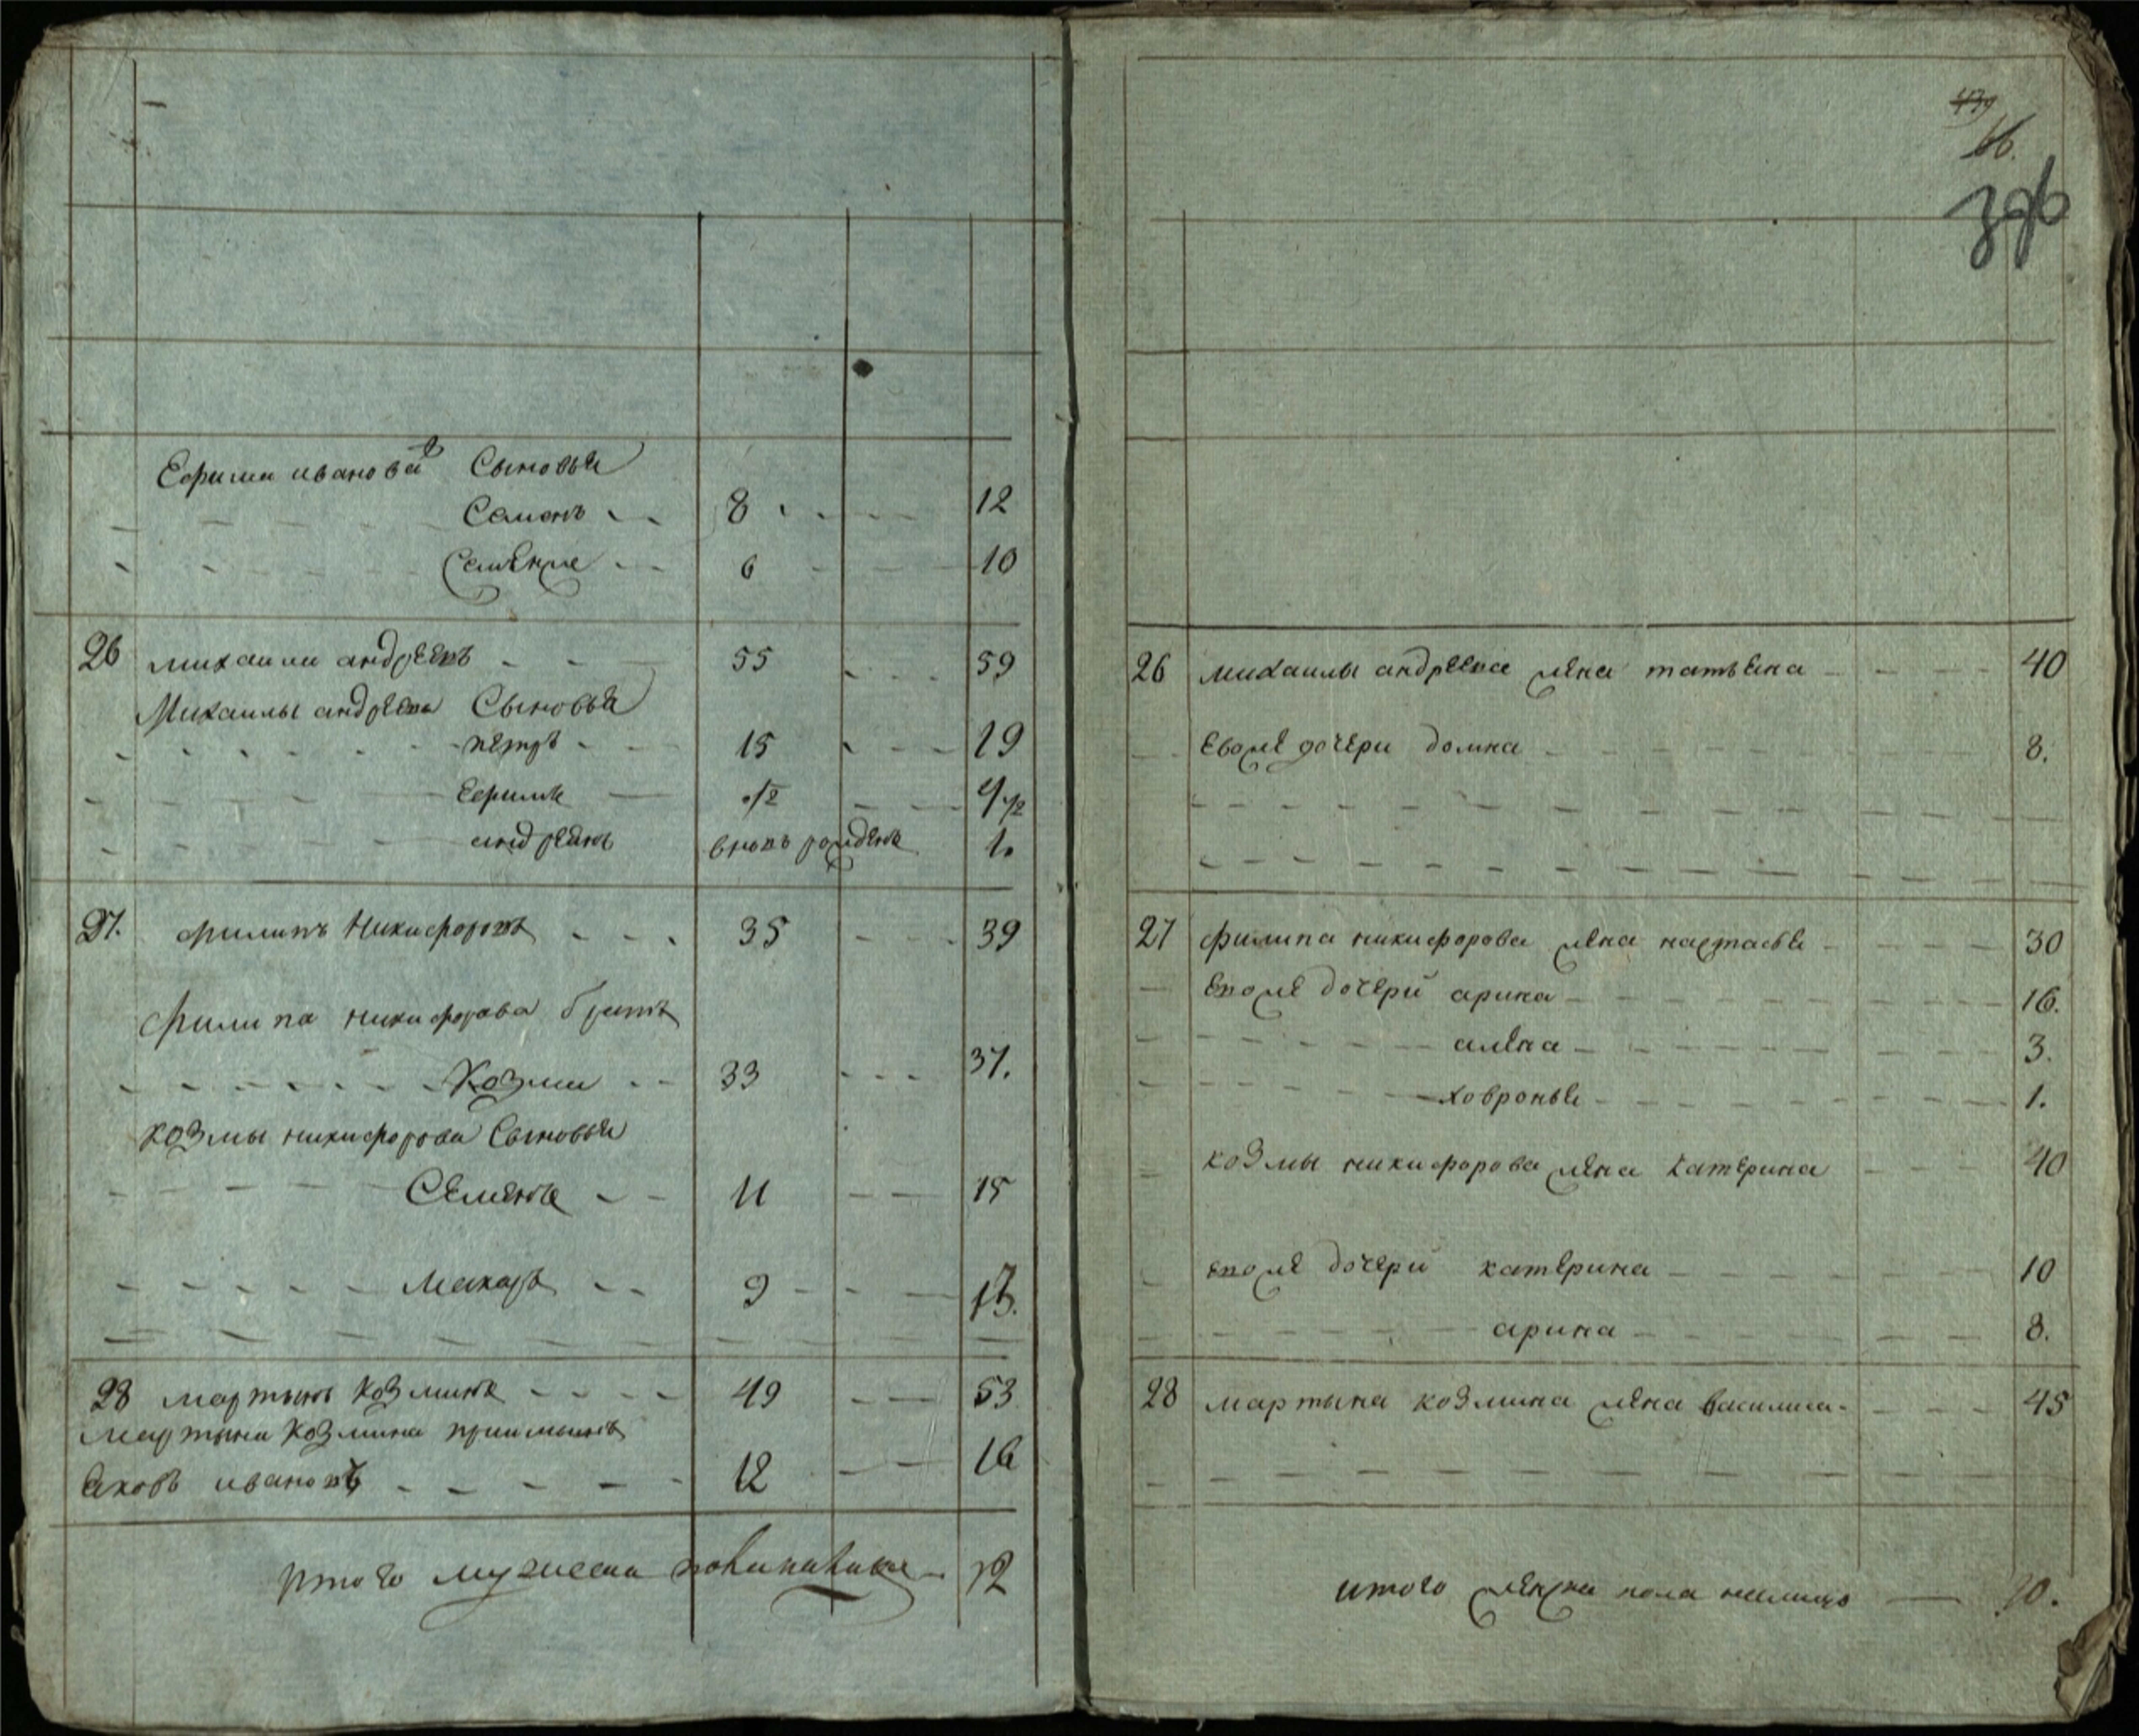 Ефима иванова Сыновья
Семенъ 8 12
6 10
26 михаила андреевъ 55 59
Михаилы андреева Сыновья
петръ 15 19
ефимъ 1/2 4 1/2
андреянъ вновь рожденъ 1.
27. филипъ Никифоровъ 35 39
филипа никифорова братъ
Козма 33 37.
козмы никифорова Сыновья
Семенъ 11 15
макаръ 9 13.
28 мартынъ козминъ 49 53
мартына козмина приимышъ
яковъ ивановъ 12 16
итого мужеска пола на лицо 12
439
66.
396
26 михаилы андреева жена татьяна 40
евоже дочери домна 8.
27 филипа никифорова жена настасья 30
евоже дочери арина 16.
алена 3.
ховронья 1.
козмы никифорова жена катерина 40
евоже дочери катерина 10
арина 8.
28 мартына козмина жена василиса 45
итого женска пола налицо 10.